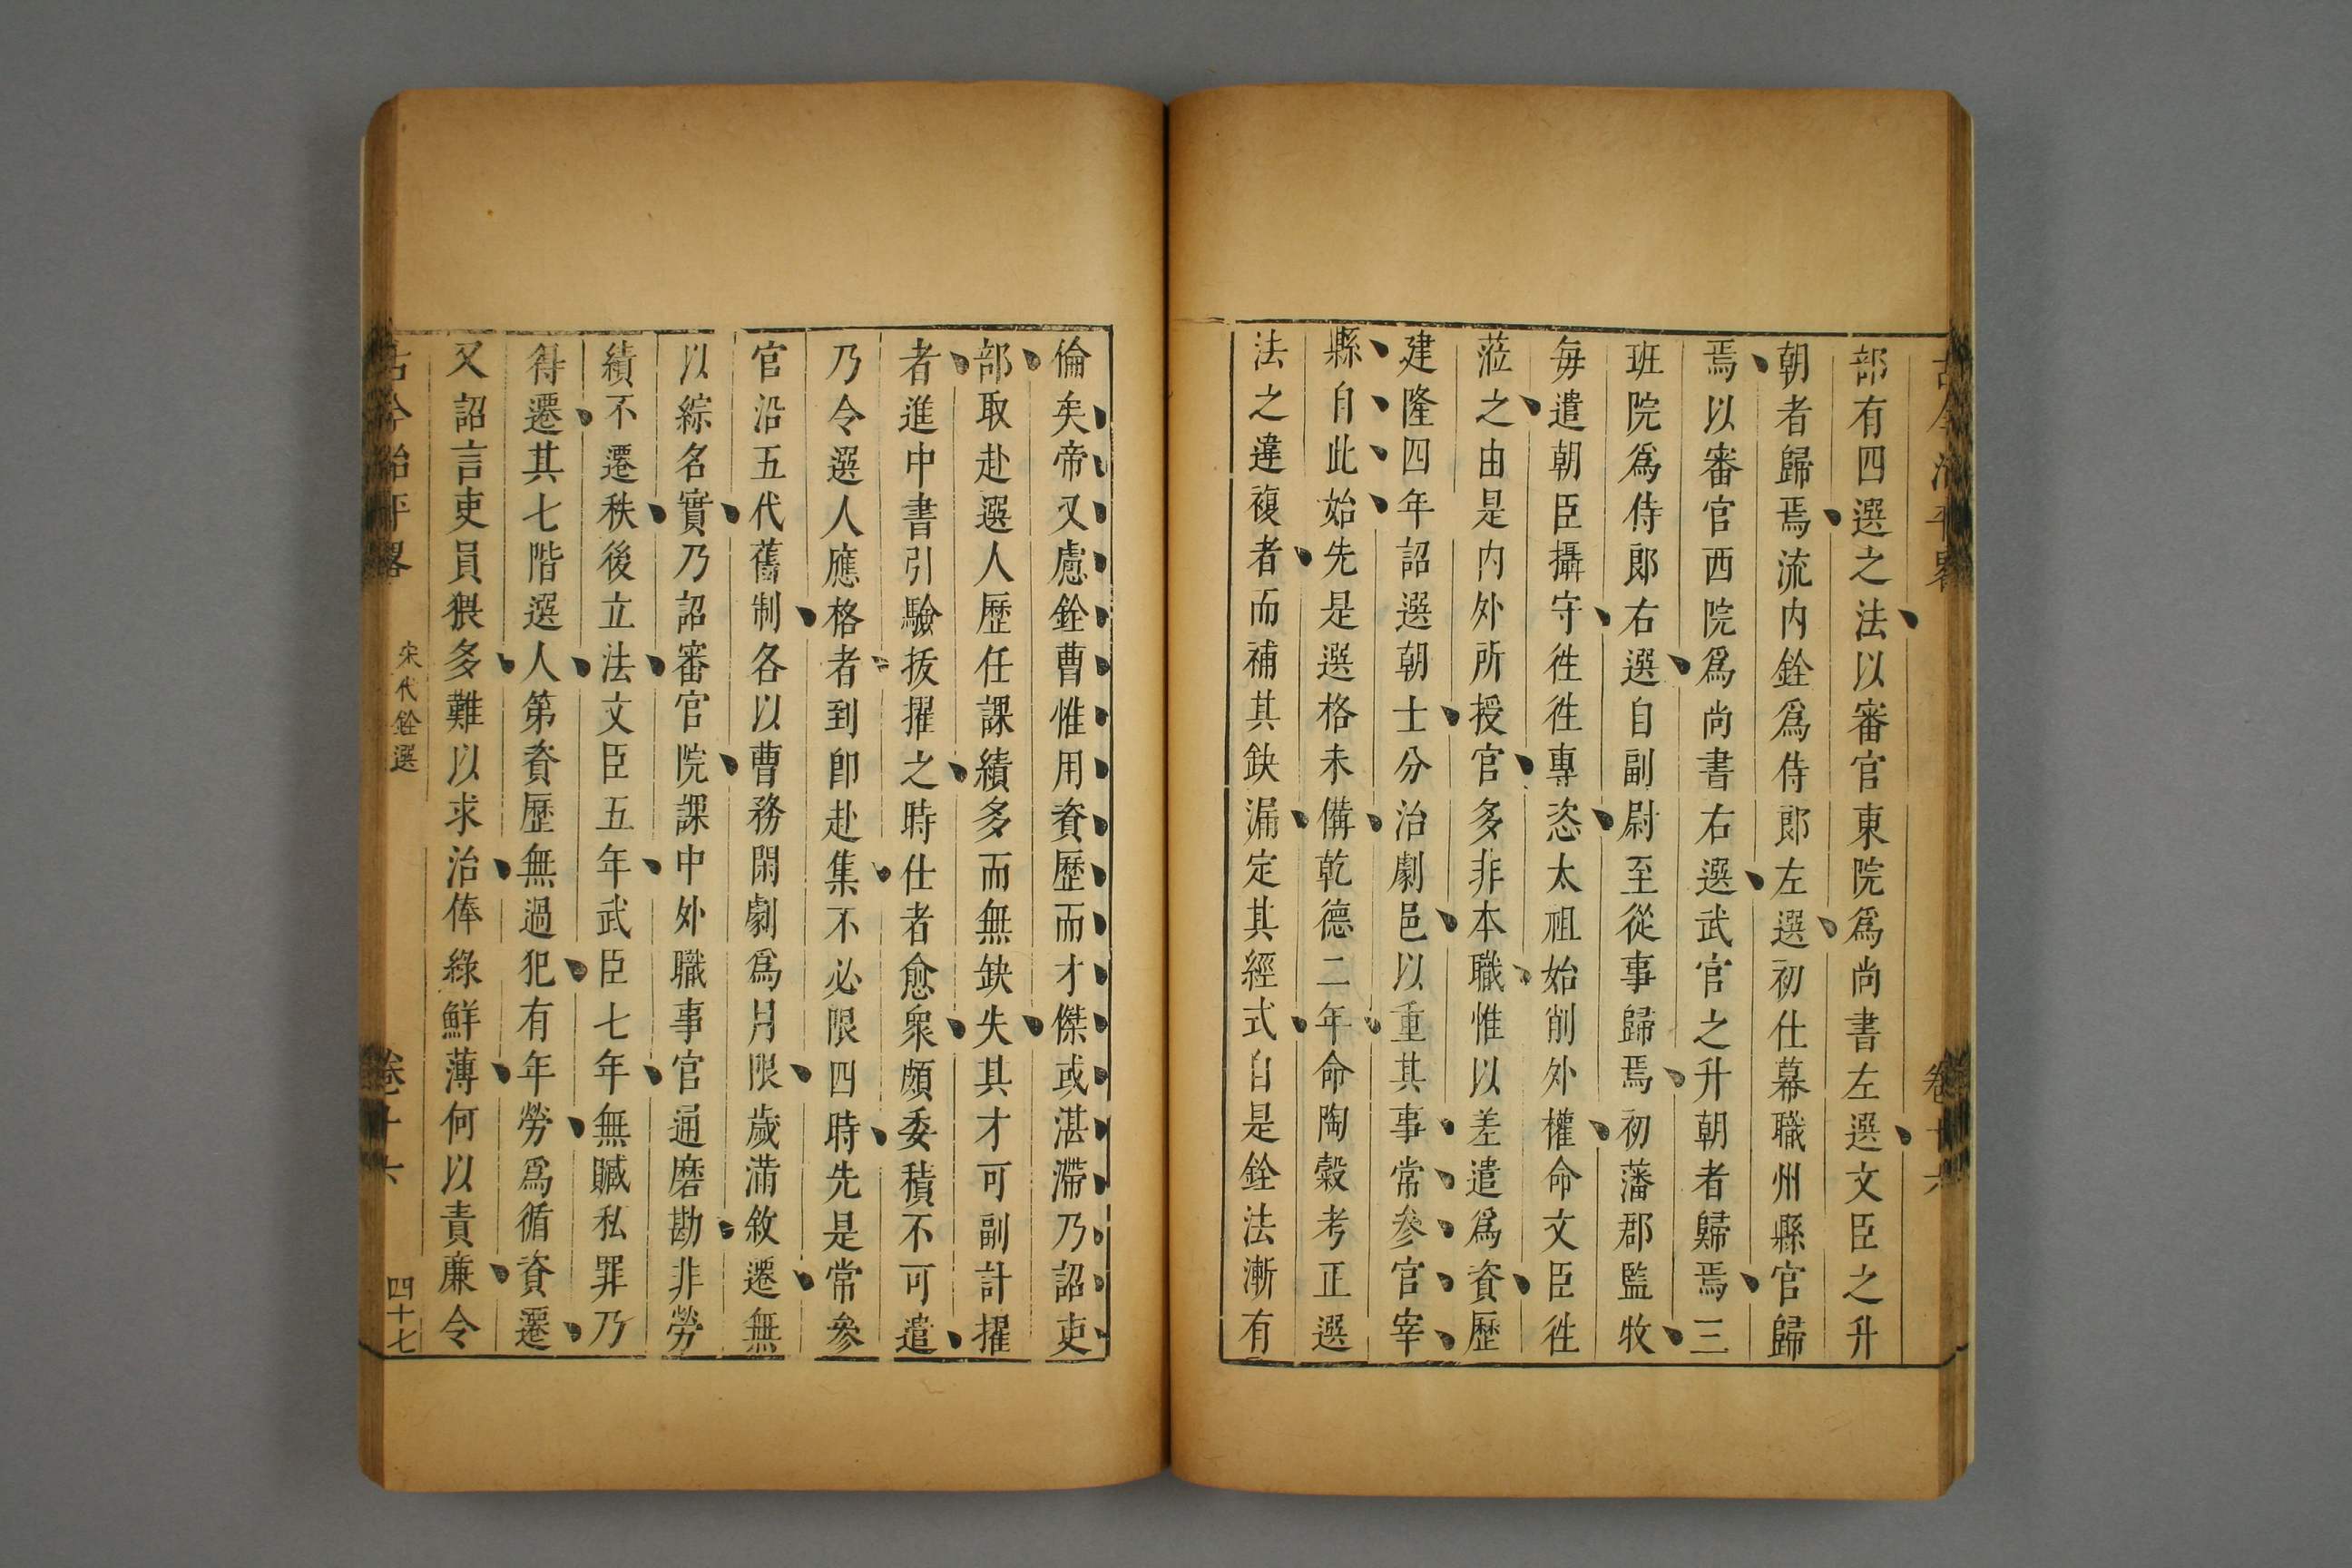 古今治平畧 卷十六
部有四選之法以審官東院爲尚書左選文臣之升
朝者歸焉流内銓爲侍郎左選初仕幕職州縣官歸
焉以審官西院爲尚書右選武官之升朝者歸焉三
班院爲侍郎右選自副尉至從事歸焉初藩郡監牧
每遣朝臣攝守徃徃專恣太祖始削外權命文臣徃
蒞之由是内外所授官多非本職惟以差遣爲資歷
建隆四年詔選朝士分治劇邑以重其事常參官宰
縣自此始先是選格未備乾德二年命陶穀考正選
法之違複者而補其鈌漏定其經式自是銓法漸有
倫矣帝又慮銓曹惟用資歷而才傑或湛滯乃詔吏
部取赴選人歷任課績多而無缺失其才可副計擢
者進中書引驗拔擢之時仕者愈衆頗委積不可遣
乃令選人應格者到卽赴集不必限四時先是常參
官沿五代舊制各以曹務閑劇爲月限歲滿敘遷無
以綜名實乃詔審官院課中外職事官通磨勘非勞
績不遷秩後立法文臣五年武臣七年無贓私罪乃
得遷其七階選人第資歷無過犯有年勞爲循資遷
又詔言吏員猥多難以求治俸祿鮮薄何以責廉令
古今治平畧 宋代銓選 卷十六 四十七